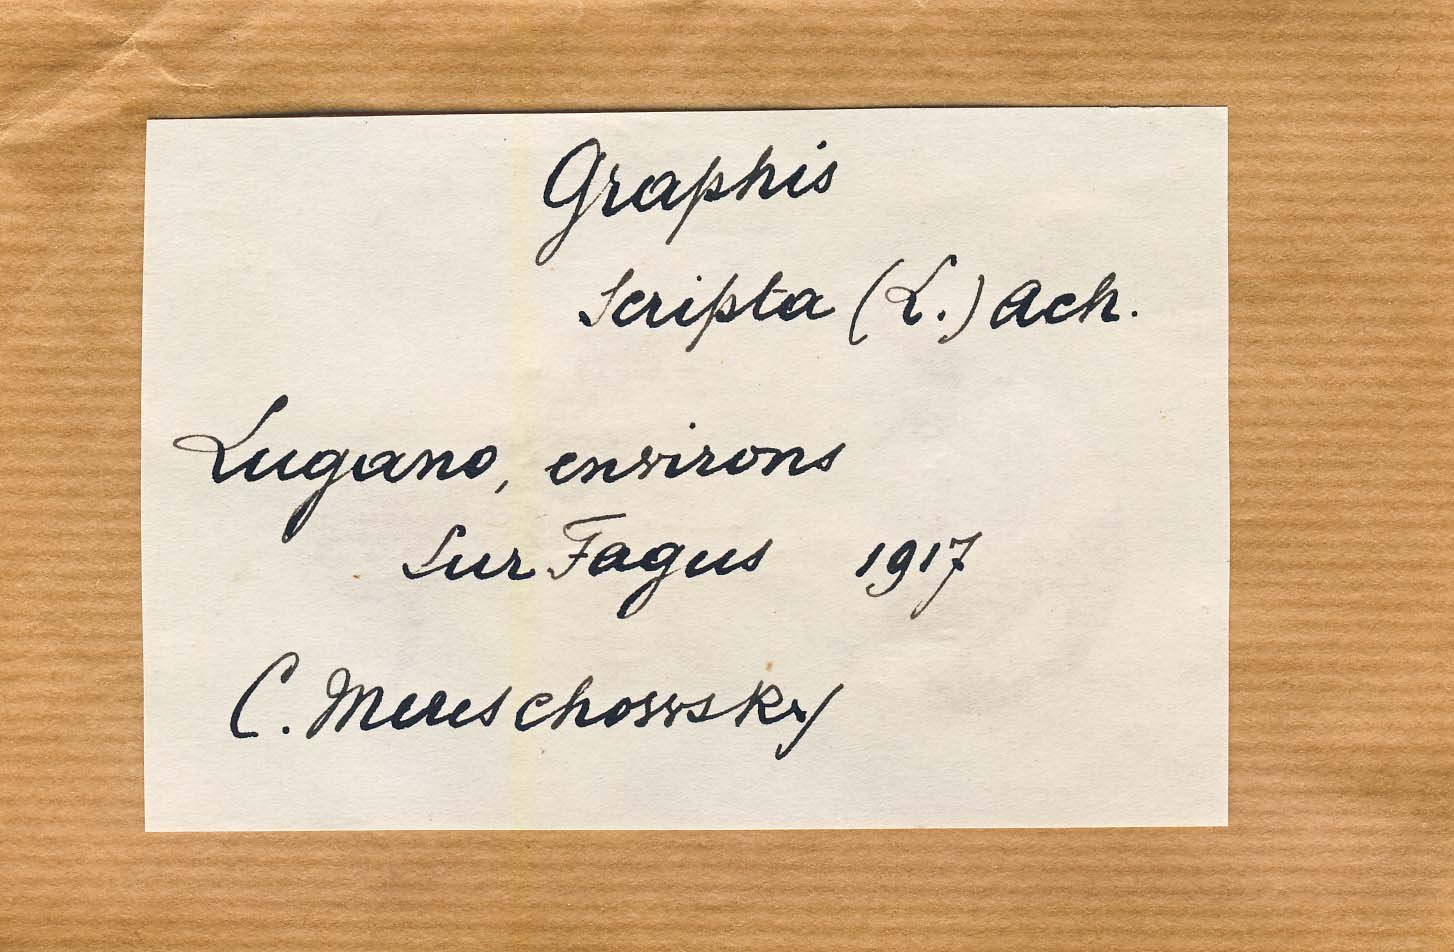 Graphis
scripta (L.) Ach.
Lugano, environs
sur Fagus 1917
C. Mereschowsky